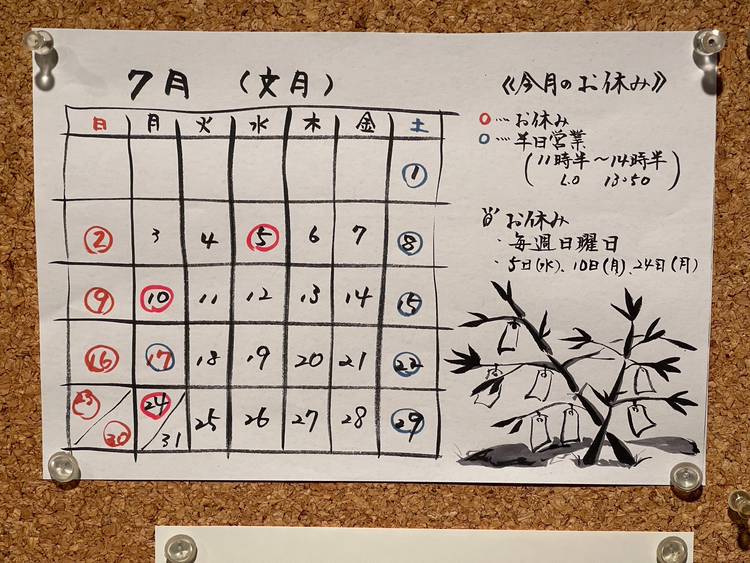 7月 (文月)
日 月 火 水 木 金 土
1
2 3 4 5 6 7 8
9 10 11 12 13 14 15
16 17 18 19 20 21 22
23/30 24/31 25 26 27 28 29
《今月のお休み》
○…お休み
○…半日営業
(11時半〜14時半)
L.O 13:50
お休み
・毎週日曜日
・5日(水)、10日(月)、24日(月)